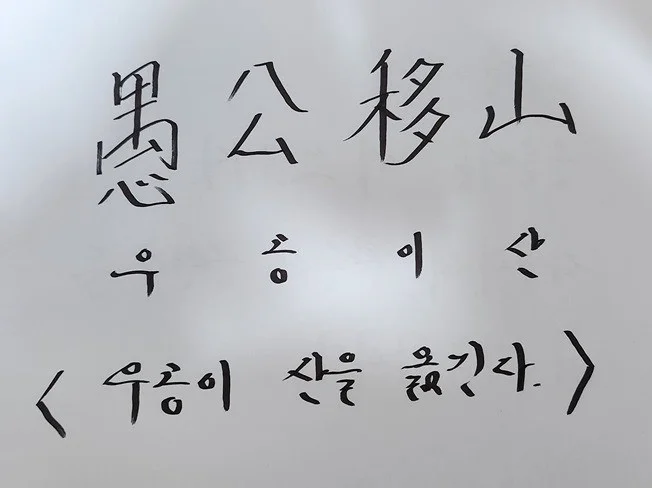 愚公移山
우공이산
<우공이 산을 옮긴다.>